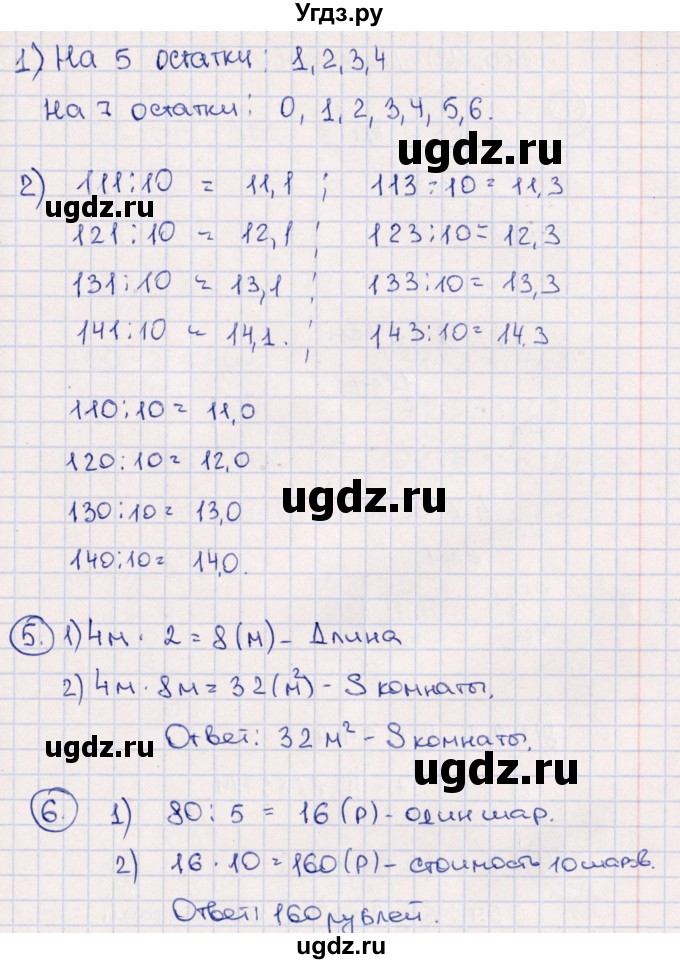 Угдз.ру
1) На 5 остатки: 1, 2, 3, 4
На 7 остатки: 0, 1, 2, 3, 4, 5, 6.
ugdz.ru
2) 111:10 = 11,1 ; 113:10 = 11,3
ugdz.ru
121:10 = 12,1 ; 123:10 = 12,3
131:10 = 13,1 ; 133:10 = 13,3
141:10 = 14,1. ; 143:10 = 14.3
110:10 = 11,0
120:10 = 12,0
ugdz.ru
130:10 = 13,0
140:10 = 14,0.
5. 1) 4м · 2 = 8 (м) - Длина
2) 4м · 8м = 32 (м²) - S комнаты,
Ответ: 32 м² - S комнаты,
ugdz.ru
ugdz.ru
6. 1) 80 : 5 = 16 (р) - один шар.
2) 16 · 10 = 160 (р) - стоимость 10 шаров.
Ответ: 160 рублей.
ugdz.ru